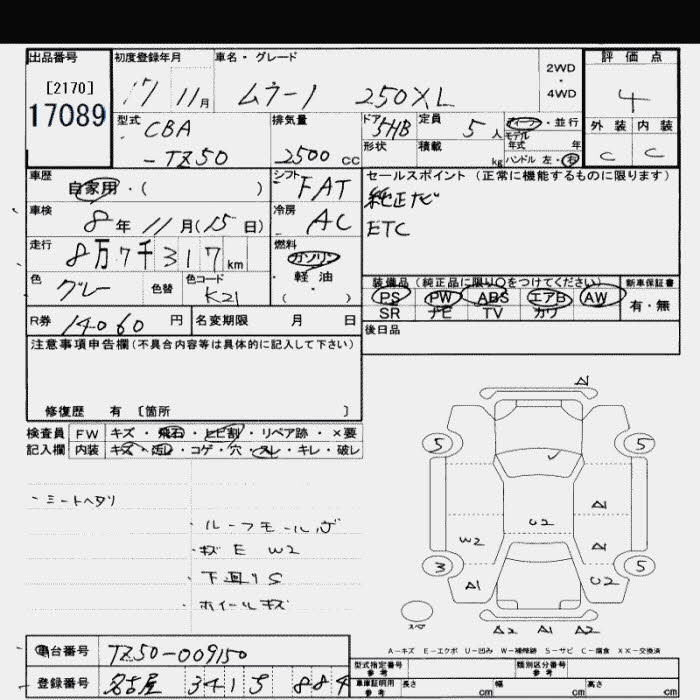 出品番号
[2170]
17089
初度登録年月
17 11月
車名・グレード
ムラーノ 250XL
2WD
・
4WD
評価点
4
外装 内装
C C
型式
CBA
-TZ50
排気量
2500 cc
ドア 5HB
形状
定員 5 人
積載 kg
ディーラー・並行
モデル年式 年
ハンドル 左・右
車歴
自家用・( )
シフト FAT
セールスポイント(正常に機能するものに限ります)
純正ナビ
ETC
車検
8年 11月(15日)
冷房 AC
走行
8万7千317km
燃料
ガソリン
・
軽油
・
( )
色
グレー
色替
色コード
K21
装備品(純正品に限り○をつけてください) 新車保証書
PS PW ABS エアB AW
SR ナビ TV カワ
有・無
R券 14060 円 名変期限 月 日
後日品
注意事項申告欄(不具合内容等は具体的に記入して下さい)
修復歴 有 [箇所 ]
検査員 FW キズ・飛石・ヒビ割・リペア跡・×要
記入欄 内装 キズ・汚レ・コゲ・穴・スレ・キレ・破レ
・シートヘタリ
・ルーフモール
・キズ E W2
・下廻りS
・ホイールキズ
A1
5 5
A1
U2
W2 A1
3 5
A1 U2
スペア
A2 A1 A2
A-キズ E-エクボ U-凹み W-補修跡 S-サビ C-腐食 XX-交換済
車台番号 TZ50-009150
登録番号 名古屋 341 ち 884
型式指定番号 参考
類別区分番号 参考
車庫証明用 参考
長さ cm 幅 cm 高さ cm